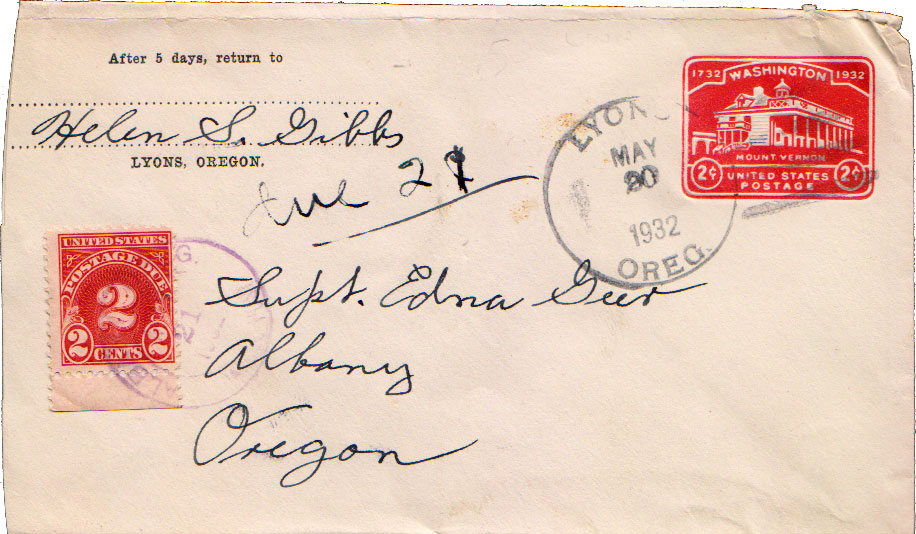 After 5 days, return to
Helen S. Gibbs
LYONS, OREGON.
Due 2¢
1732 WASHINGTON 1932
MOUNT VERNON
2¢ UNITED STATES 2¢
POSTAGE
LYONS
MAY
20
1932
OREG.
UNITED STATES
POSTAGE DUE
2
2 CENTS 2
G.
21
Supt. Edna Geer
Albany
Oregon